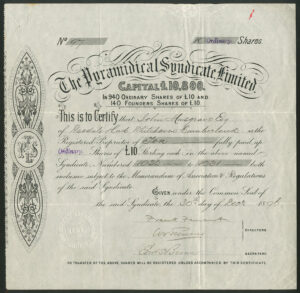 No 47 Ordinary Shares.
The Pyramidical Syndicate Limited.
CAPITAL £10,800.
IN 940 ORDINARY SHARES OF £10 AND
140 FOUNDERS SHARES OF £10.
This is to Certify that John Musgrave Esq
of Wasdale Hall Whitehaven Cumberland is the
Registered Proprietor of Ten fully paid up
Ordinary Shares of £10 Sterling each in the above named
Syndicate Numbered to both
inclusive subject to the Memorandum of Association & Regulations
of the said Syndicate.
GIVEN under the Common Seal of
the said Syndicate the 20th day of Decr
DIRECTORS
SECRETARY.
NO TRANSFER OF THE ABOVE SHARES WILL BE REGISTERED UNLESS ACCOMPANIED BY THIS CERTIFICATE.